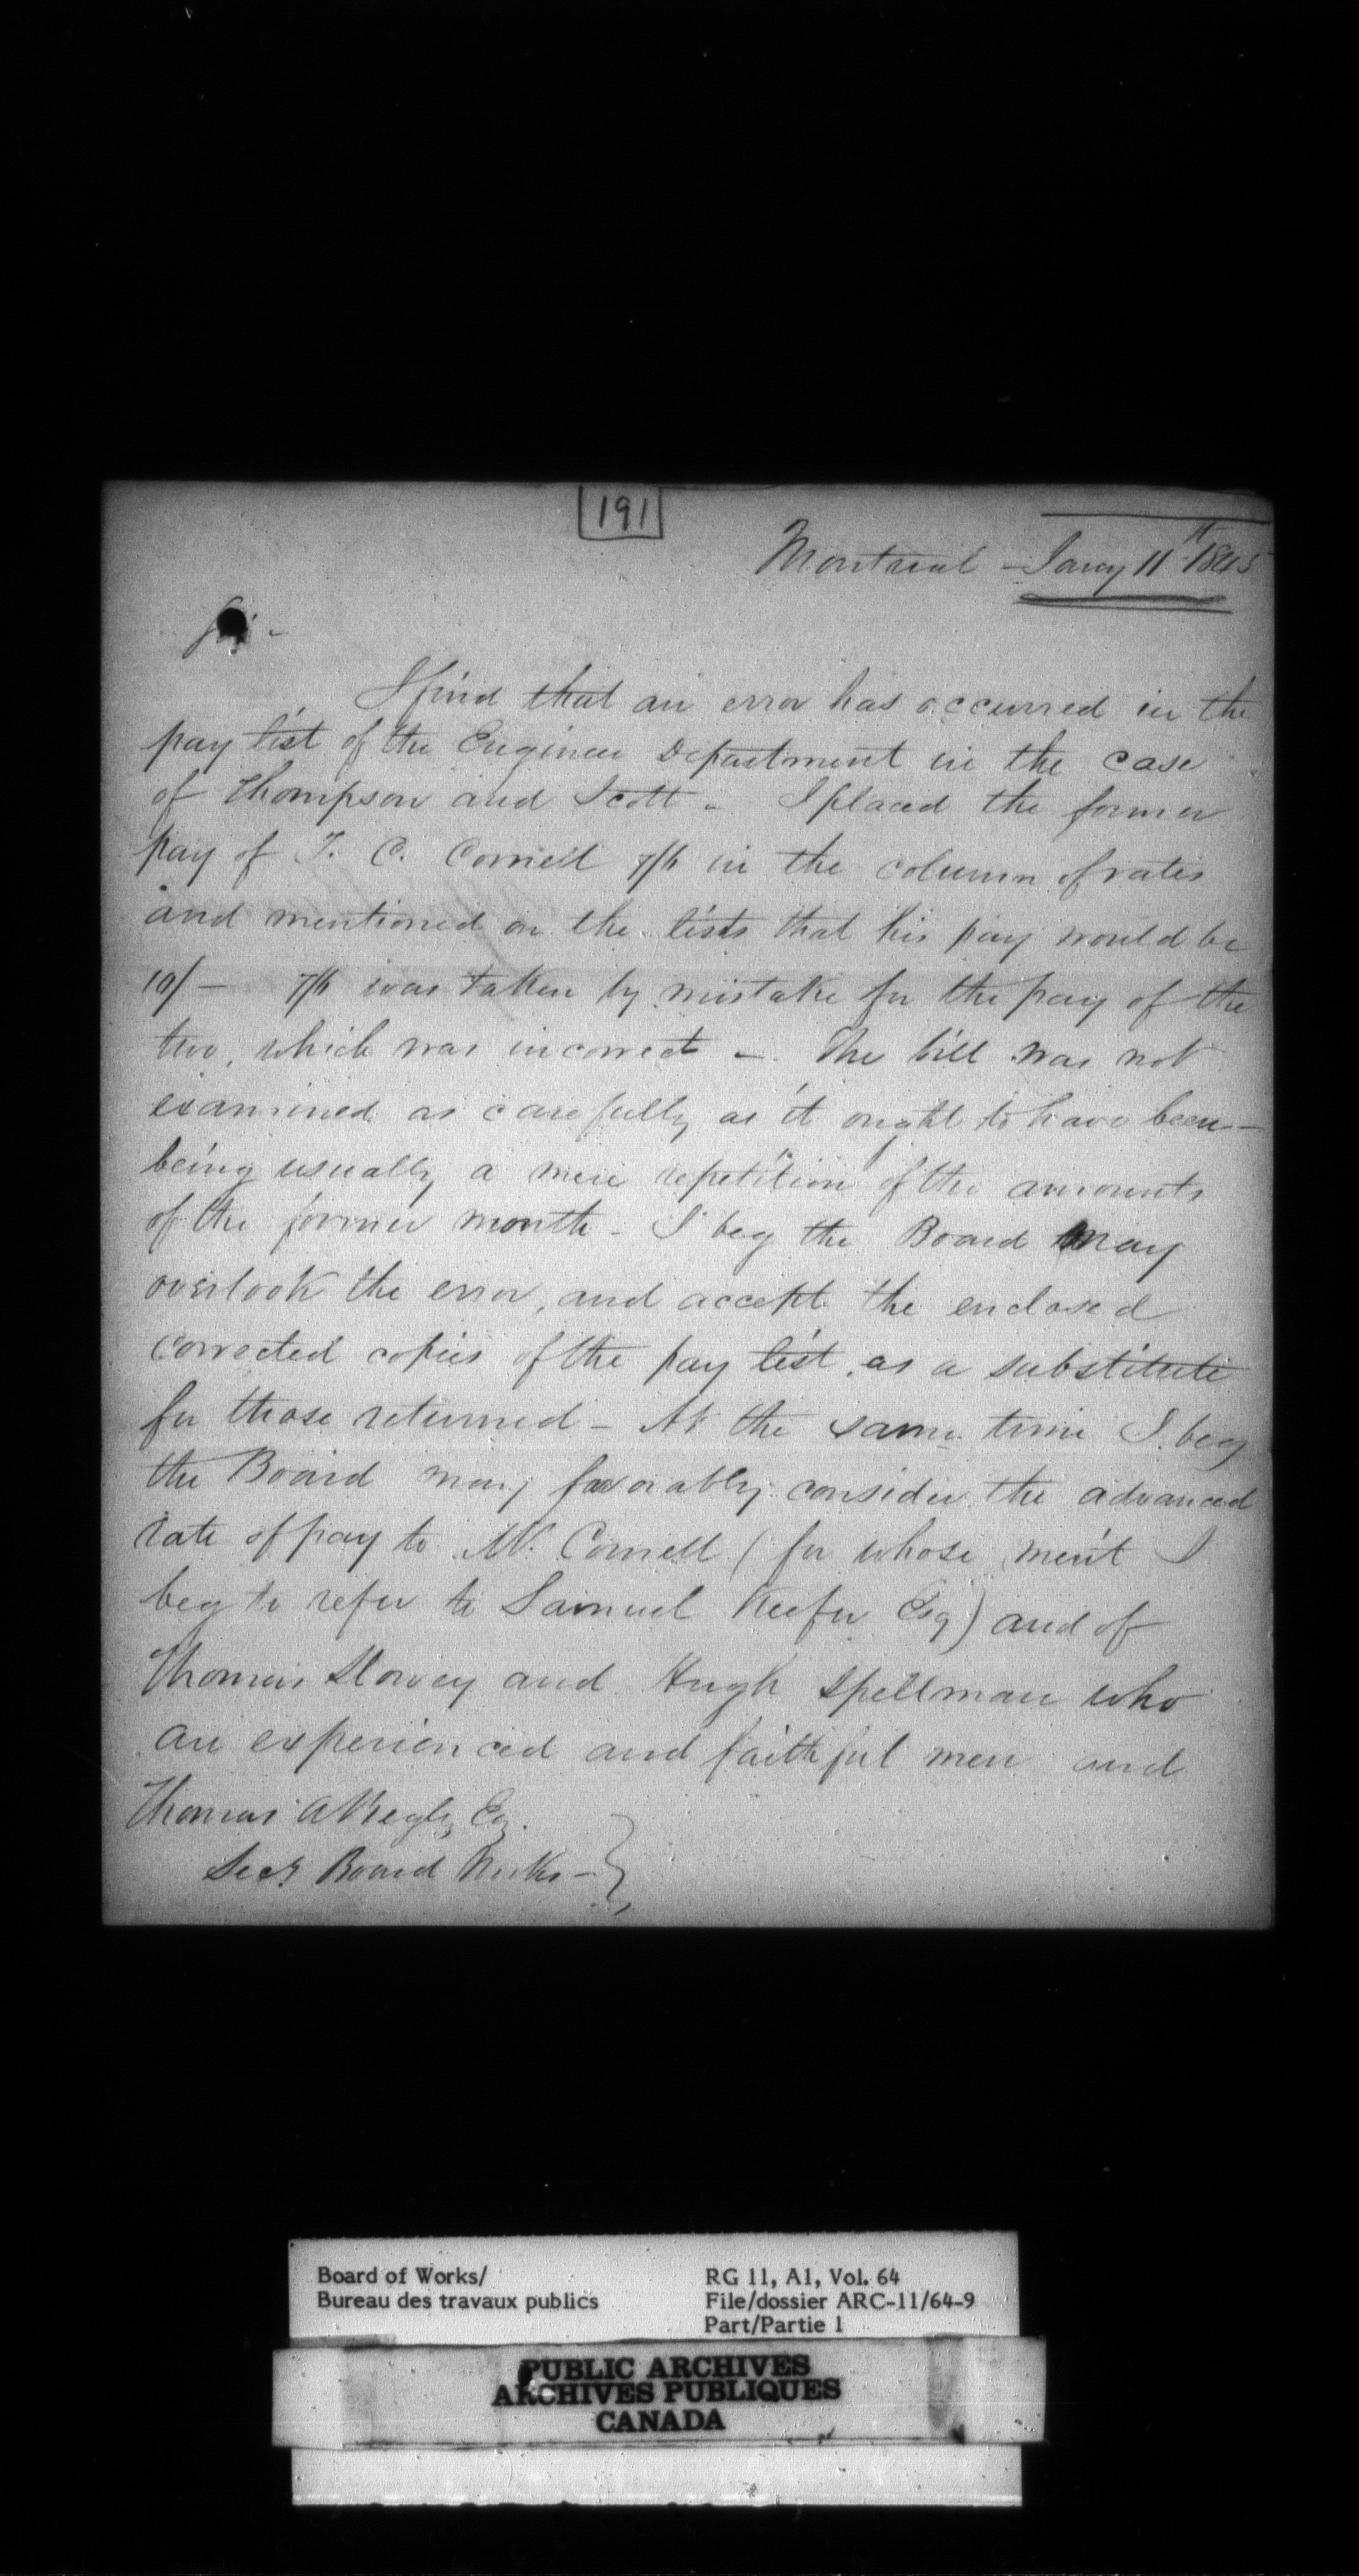 191
Montreal - Jany 11th 1845
Sir -
I find that an error has occurred in the
pay list of the Engineer Department in the case
of Thompson and Scott - I placed the former
pay of T. C. Cornell 7/6 in the column of rates
and mentioned on the lists that his pay would be
10/- 7/6 was taken by mistake for the pay of the
two, which was incorrect - The bill was not
examined as carefully as it ought to have been -
being usually a mere repetition of the amounts
of the former month - I beg the Board may
overlook the error, and accept the enclosed
corrected copies of the pay list, as a substitute
for those returned - At the same time I beg
the Board may favorably consider the advanced
rate of pay to Mr. Cornell (for whose merit I
beg to refer to Samuel Keefer Esq) and of
Thomas and Hugh Spellman who
are experienced and faithful men and
Thomas A Begly Esq.
Secy Board Works - }
Board of Works/
Bureau des travaux publics
RG 11, A1, Vol. 64
File/dossier ARC-11/64-9
Part/Partie 1
PUBLIC ARCHIVES
ARCHIVES PUBLIQUES
CANADA